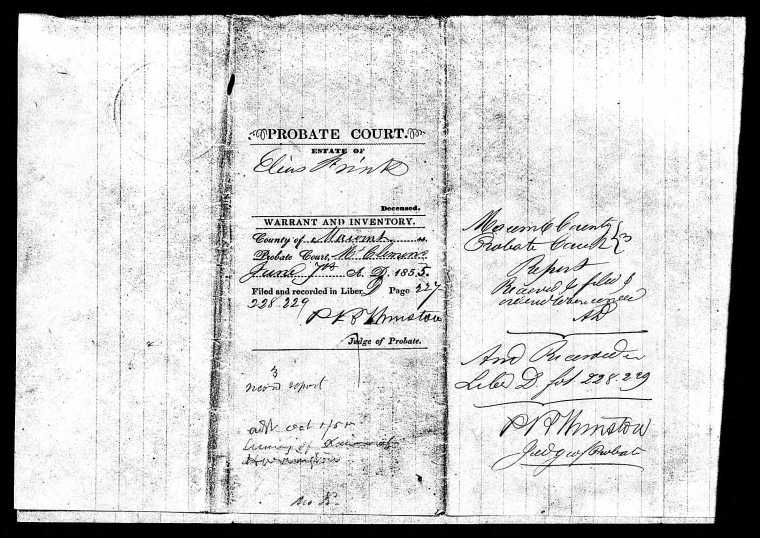 PROBATE COURT.
ESTATE OF
Elias Frink
Deceased.
WARRANT AND INVENTORY.
County of Macomb ss.
Probate Court, Mt Clemens
June 7th A. D. 1855.
Filed and recorded in Liber D Page 227
228 229
P. K. Thurston
Judge of Probate.
3
report
adv Oct
No
Macomb County
Probate Court } 3
Report
Received & filed &
AD
And Recorded in
Liber D. fol 228.229
Judge of Probate